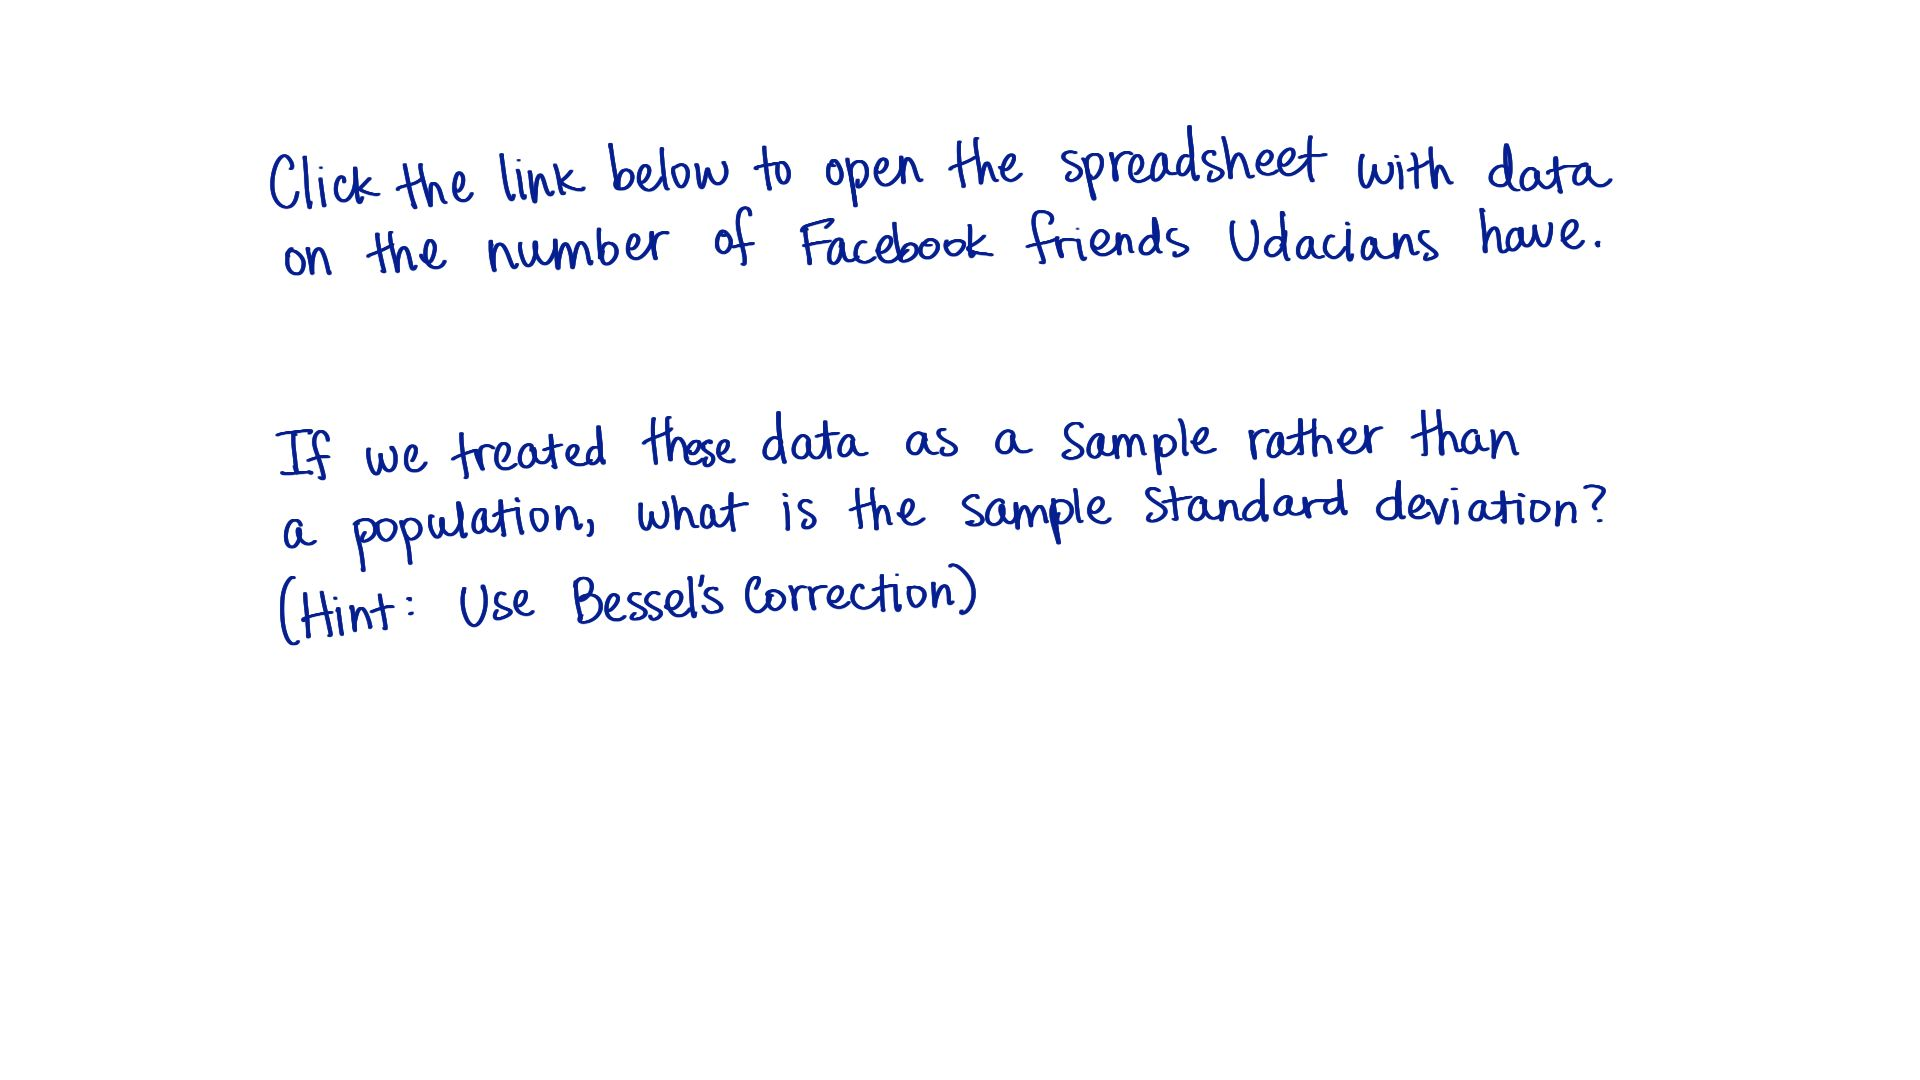 Click the link below to open the spreadsheet with data
on the number of Facebook friends Udacians have.
If we treated these data as a sample rather than
a population, what is the sample standard deviation?
(Hint: Use Bessel's Correction)